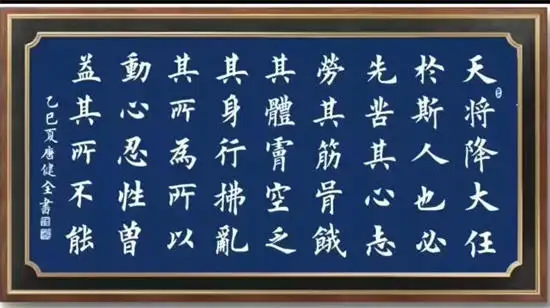 天将降大任
於斯人也必
先苦其心志
勞其筋骨餓
其體膚空乏
其身行拂亂
其所為所以
動心忍性曾
益其所不能
乙巳夏唐健全書